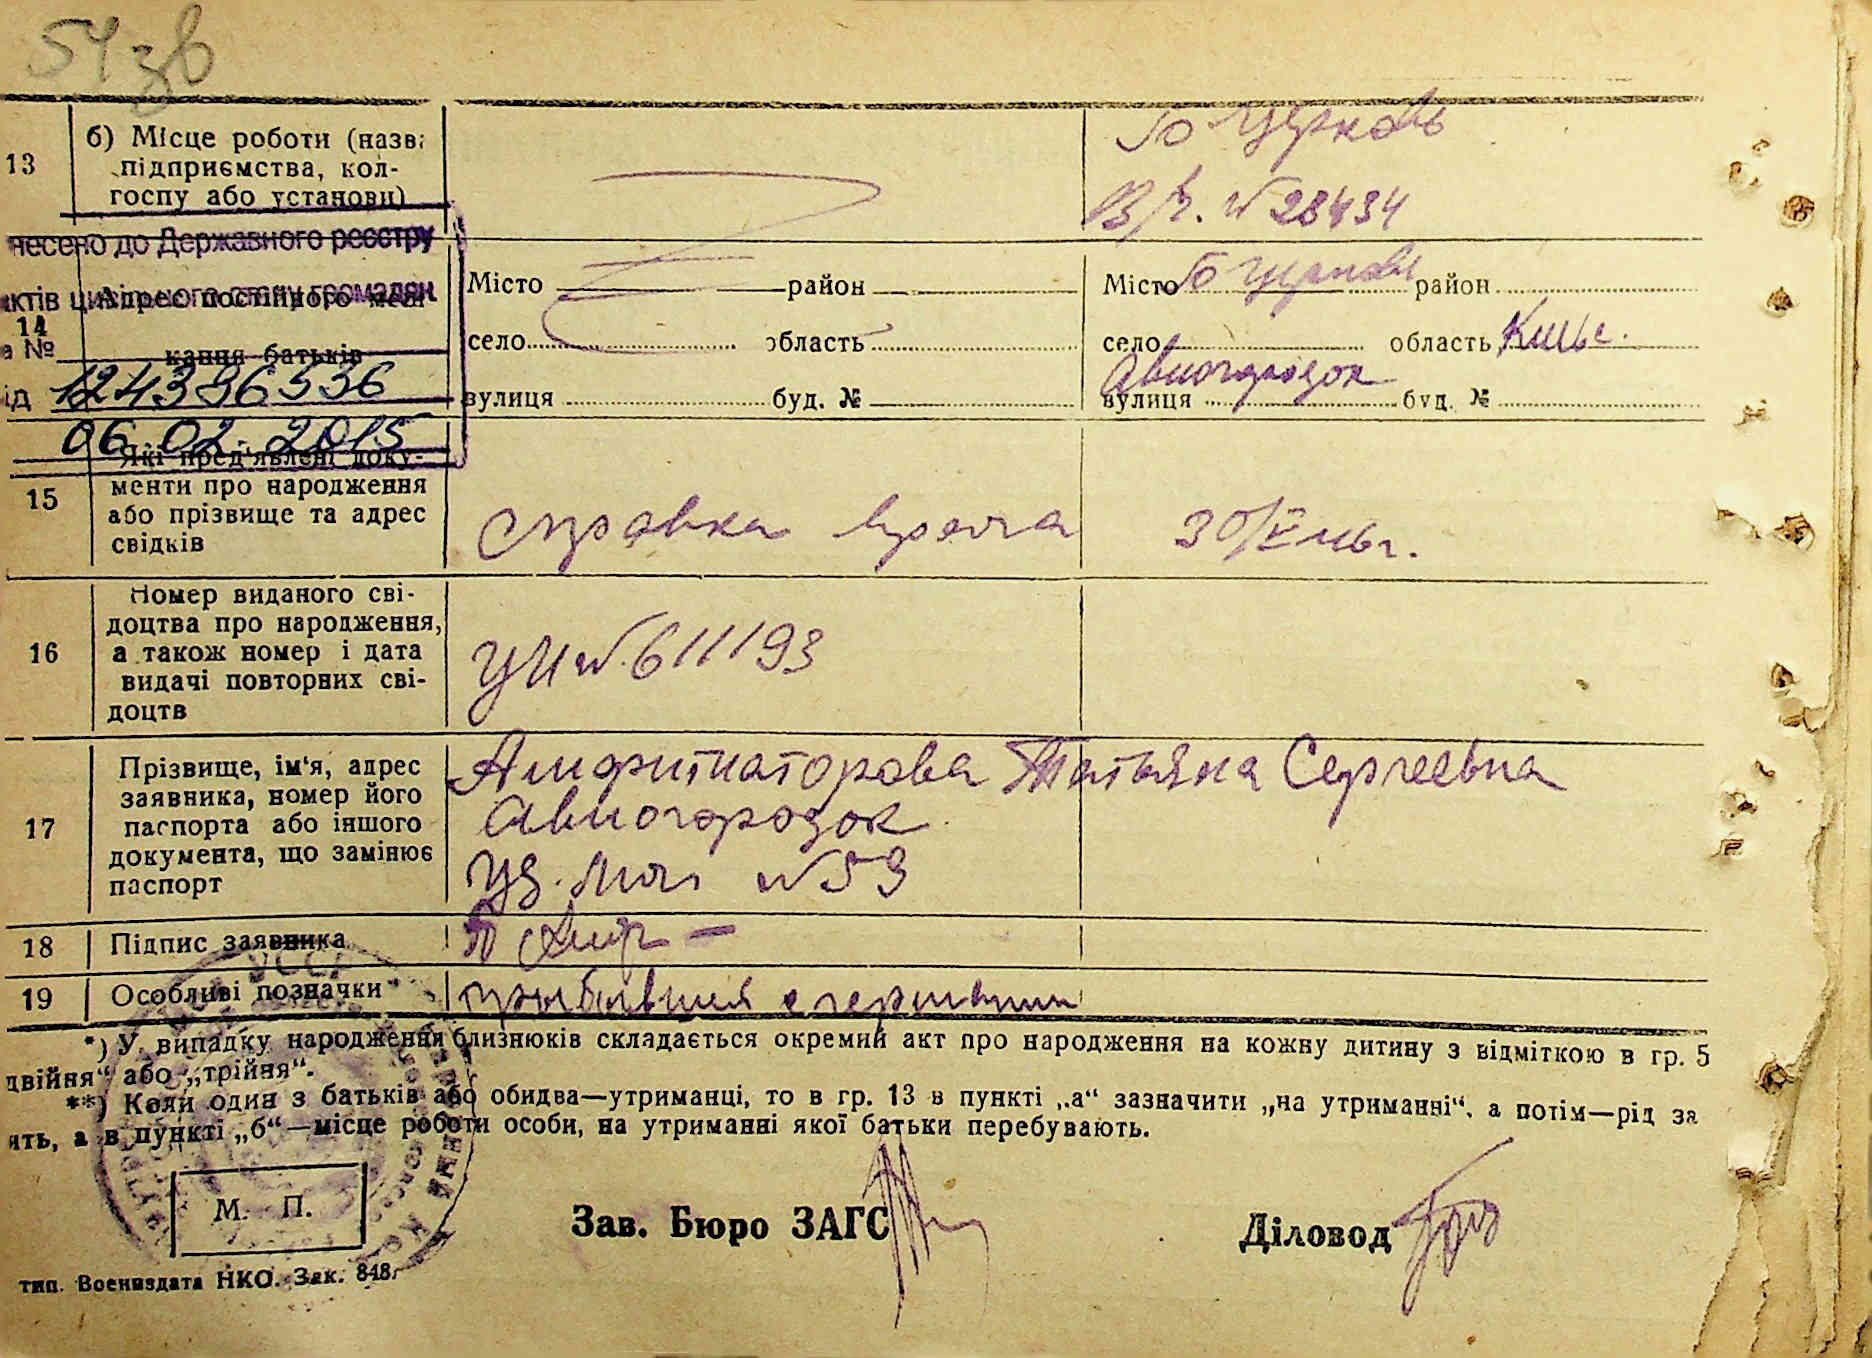 54 зв
13
б) Місце роботи (назв:
підприємства, кол-
госпу або установи)
Б Церковь
В/ч. № 28434
несено до Державного реєстру
актів цивільного стану громадян
14
Адрес постійного меш
кання батьків
№
124396536
ід
06.02.2015
Місто район
село область
вулиця буд. №
Місто Б Церковь район
село область Киевс.
Авиагородок
вулиця буд. №
15
Які пред'явлені доку-
менти про народження
або прізвище та адрес
свідків
справка врача
30/V 46 г.
16
Номер виданого сві-
доцтва про народження,
а також номер і дата
видачі повторних сві-
доцтв
УИ № 611193
17
Прізвище, ім'я, адрес
заявника, номер його
паспорта або іншого
документа, що замінює
паспорт
Амфитиаторова Татьяна Сергеевна
Авиогородок
№ 53
18
Підпис заявника
19
Особливі позначки
*) У випадку народження близнюків складається окремий акт про народження на кожну дитину з відміткою в гр. 5
двійня“ або „трійня“.
**) Коли один з батьків або обидва—утриманці, то в гр. 13 в пункті „а“ зазначити „на утриманні“, а потім—рід за
ять, а в пункті „б“—місце роботи особи, на утриманні якої батьки перебувають.
М. П.
Зав. Бюро ЗАГС
Діловод
тип. Воениздата НКО. Зак. 848.